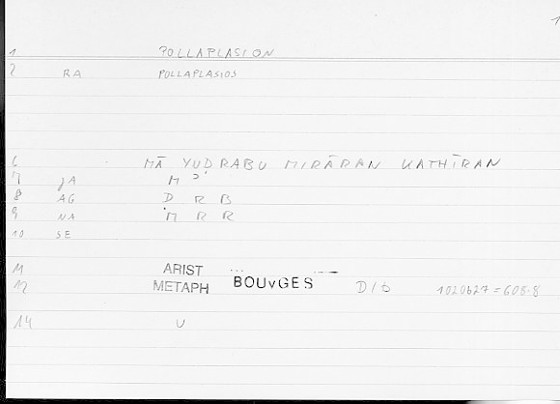 1
1 POLLAPLASION
2 RA POLLAPLASIOS
6 MĀ YUDRABU MIRĀRAN KATHĪRAN
7 JA M ʾ
8 AG D R B
9 NA M R R
10 SE
11 ARIST
12 METAPH BOUvGES Δ 1020b27 = 608.8
14 U